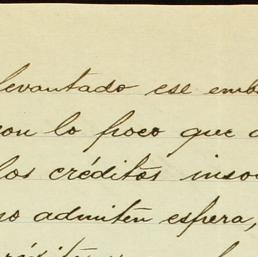 levantado ese emb
con lo poco que
los créditos inso
no admiten espera,